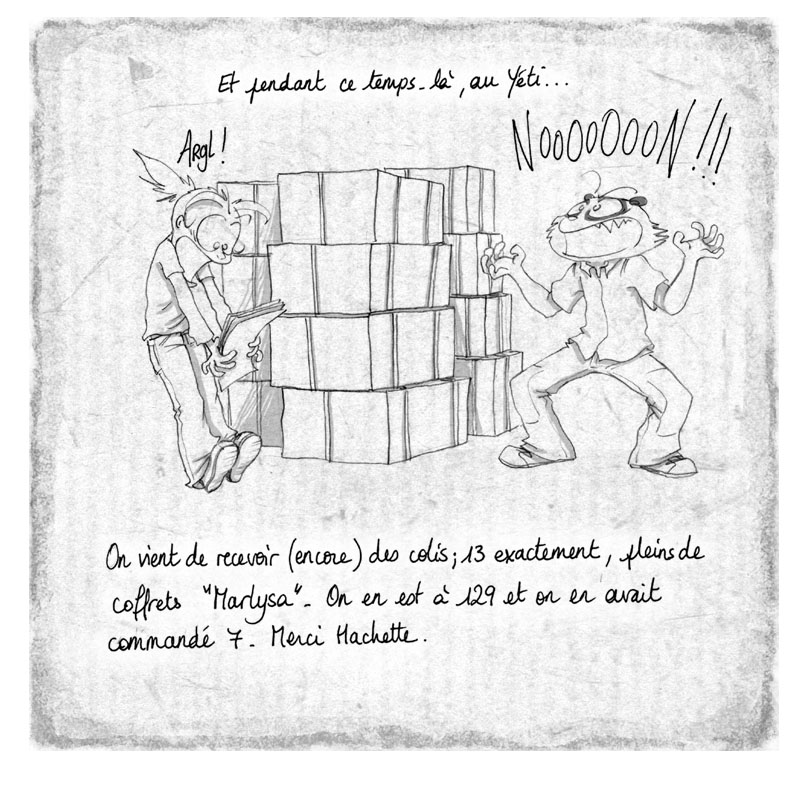 Et pendant ce temps-là, au Yéti...
ARGL!
NOOOOOOON!!!
On vient de recevoir (encore) des colis; 13 exactement, pleins de
coffrets "Marlysa". On en est à 129 et on en avait
commandé 7. Merci Hachette.